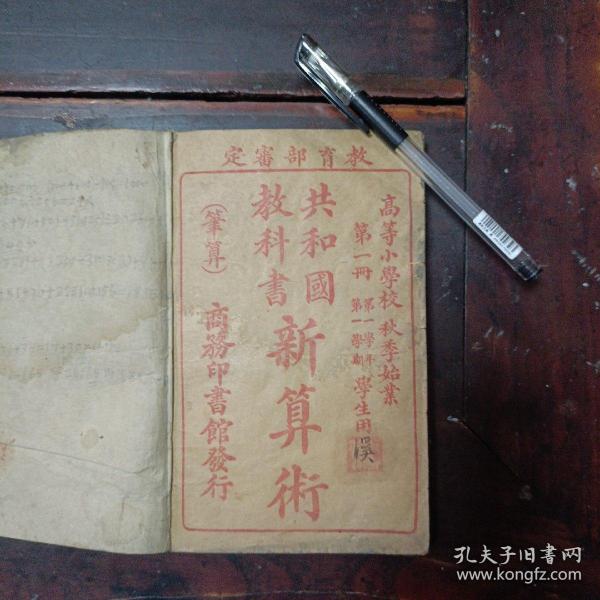 教育部審定
高等小學校 秋季始業
第一冊 第一學年 第一學期 學生用
共和國
教科書
新算術
(筆算)
商務印書館發行
孔夫子旧书网
www.kongfz.com